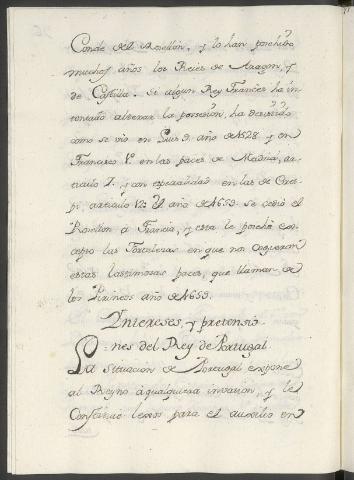 Conde del Rosellon, y lo han posehido
muchos años los Reies de Aragon, y
de Castilla. Si algun Rey Frances ha in
tentado alterar la posesion, ha desistido
como se vio en Luis 9. año de 1528. y en
Francisco 1º. en las paces de Madrid, ar-
ticulo 7. y con especialidad en las de Cres-
pi, articulo 12. El año de 1659. se cedió el
Rosellon á Francia, y esta le posehe ex-
cepto las Fortalezas en que no cogieron
estas lastimosas paces, que llaman de
los Pirineos año de 1659.
Intereses, y pretensio
nes del Rey de Portugal
La situacion de Portugal expone
al Reyno á qualquiera invasion, y le
Constituie lexos para el auxilio en